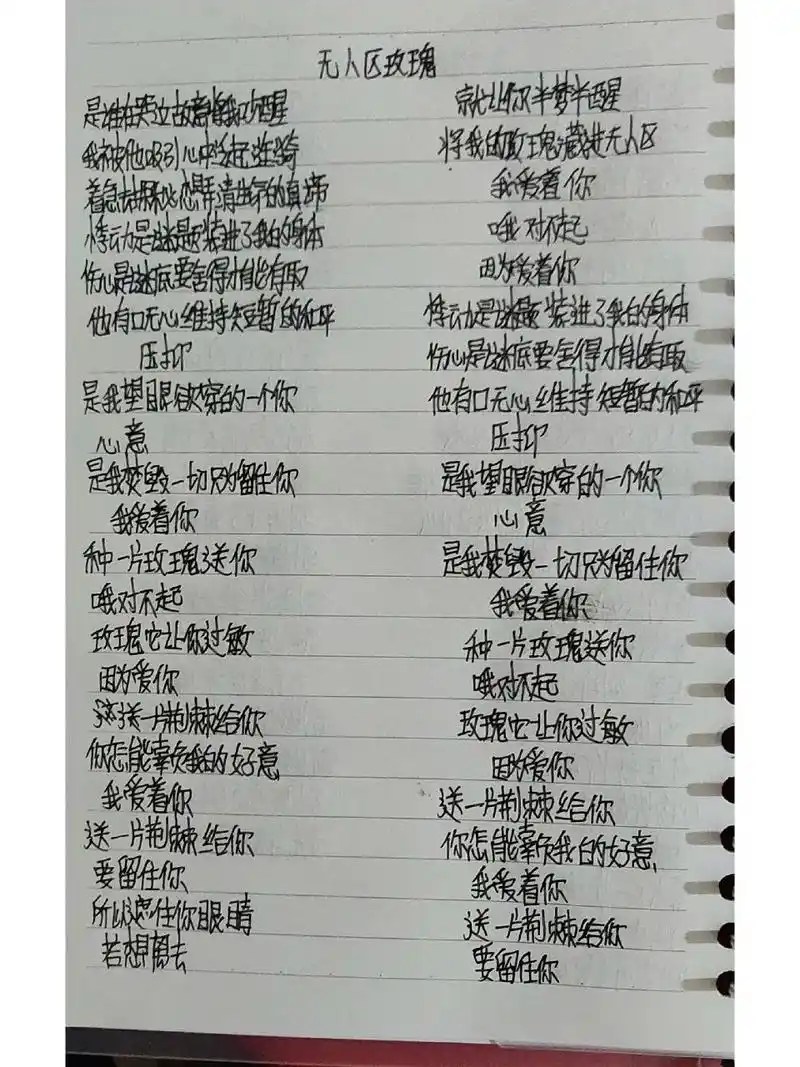 无人区玫瑰
是谁在旁立故意将我吵醒
我被他吸引心中泛起涟漪
着急去揭秘想弄清此番的真谛
悸动是谜题装进了我的身体
伤心是谜底要舍得才能有取
他有口无心维持短暂的和平
压抑
是我望眼欲穿的一个你
心意
是我焚毁一切只为留住你
我爱着你
种一片玫瑰送你
哦对不起
玫瑰它让你过敏
因为爱你
送一片荆棘给你
你怎能辜负我的好意
我爱着你
送一片荆棘给你
要留住你
所以遮住你眼睛
若想离去
就让你半梦半醒
将我的玫瑰藏进无人区
我爱着你
哦对不起
因为爱着你
悸动是谜题装进了我的身体
伤心是谜底要舍得才能有取
他有口无心维持短暂的和平
压抑
是我望眼欲穿的一个你
心意
是我焚毁一切只为留住你
我爱着你
种一片玫瑰送你
哦对不起
玫瑰它让你过敏
因为爱你
送一片荆棘给你
你怎能辜负我的好意
我爱着你
送一片荆棘给你
要留住你